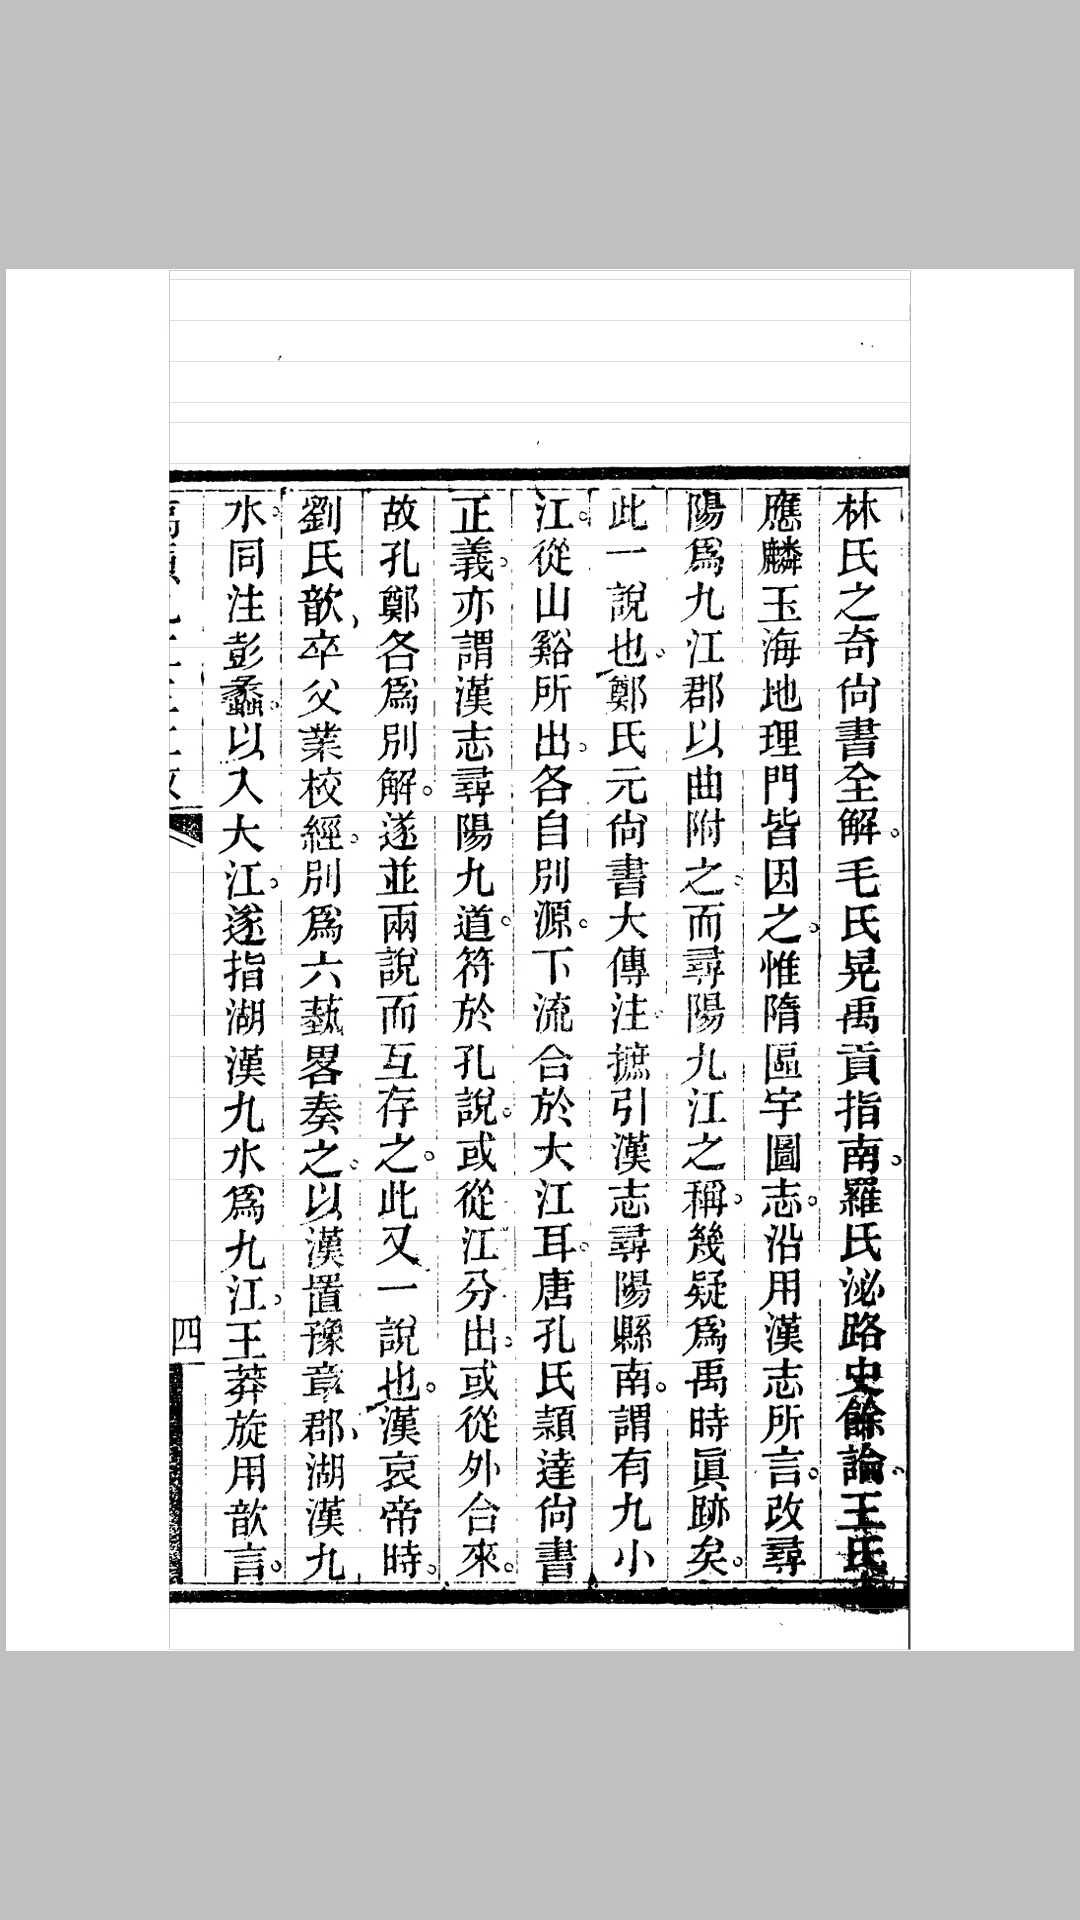 林氏之奇尙書全解。毛氏晃禹貢指南。羅氏泌路史餘論。王氏
應麟玉海地理門皆因之。惟隋區宇圖志。沿用漢志所言。改尋
陽爲九江郡以曲附之。而尋陽九江之稱。幾疑爲禹時眞跡矣。
此一說也。鄭氏元尙書大傳注。摭引漢志尋陽縣南。謂有九小
江。從山谿所出。各自別源。下流合於大江耳。唐孔氏穎達尙書
正義。亦謂漢志尋陽九道。符於孔說。或從江分出。或從外合來。
故孔鄭各爲別解。遂並兩說而互存之。此又一說也。漢哀帝時。
劉氏歆、卒父業校經。別爲六蓺畧奏之。以漢置豫章郡、湖漢九
水。同注彭蠡。以入大江。遂指湖漢九水爲九江。王莽旋用歆言。
四